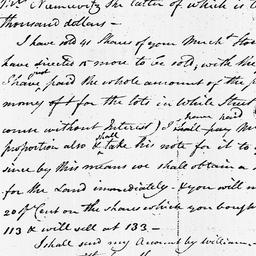 Niemcewitz the latter of which is t
thousand dollars —
I have sold 41 Shares of your Mercht Sto
have directed 15 more to be sold, with the
I have not paid the whole amount of the p
money off for the lots in which Steel
course without Interest) I shall pay the
have paid
proportion also & shall take his note for it to
since by this means we shall obtain a
for the Land immediately. & you will m
20 P Cent on the shares which you bough
113 & will sell at 133 —
I shall send my Account by William